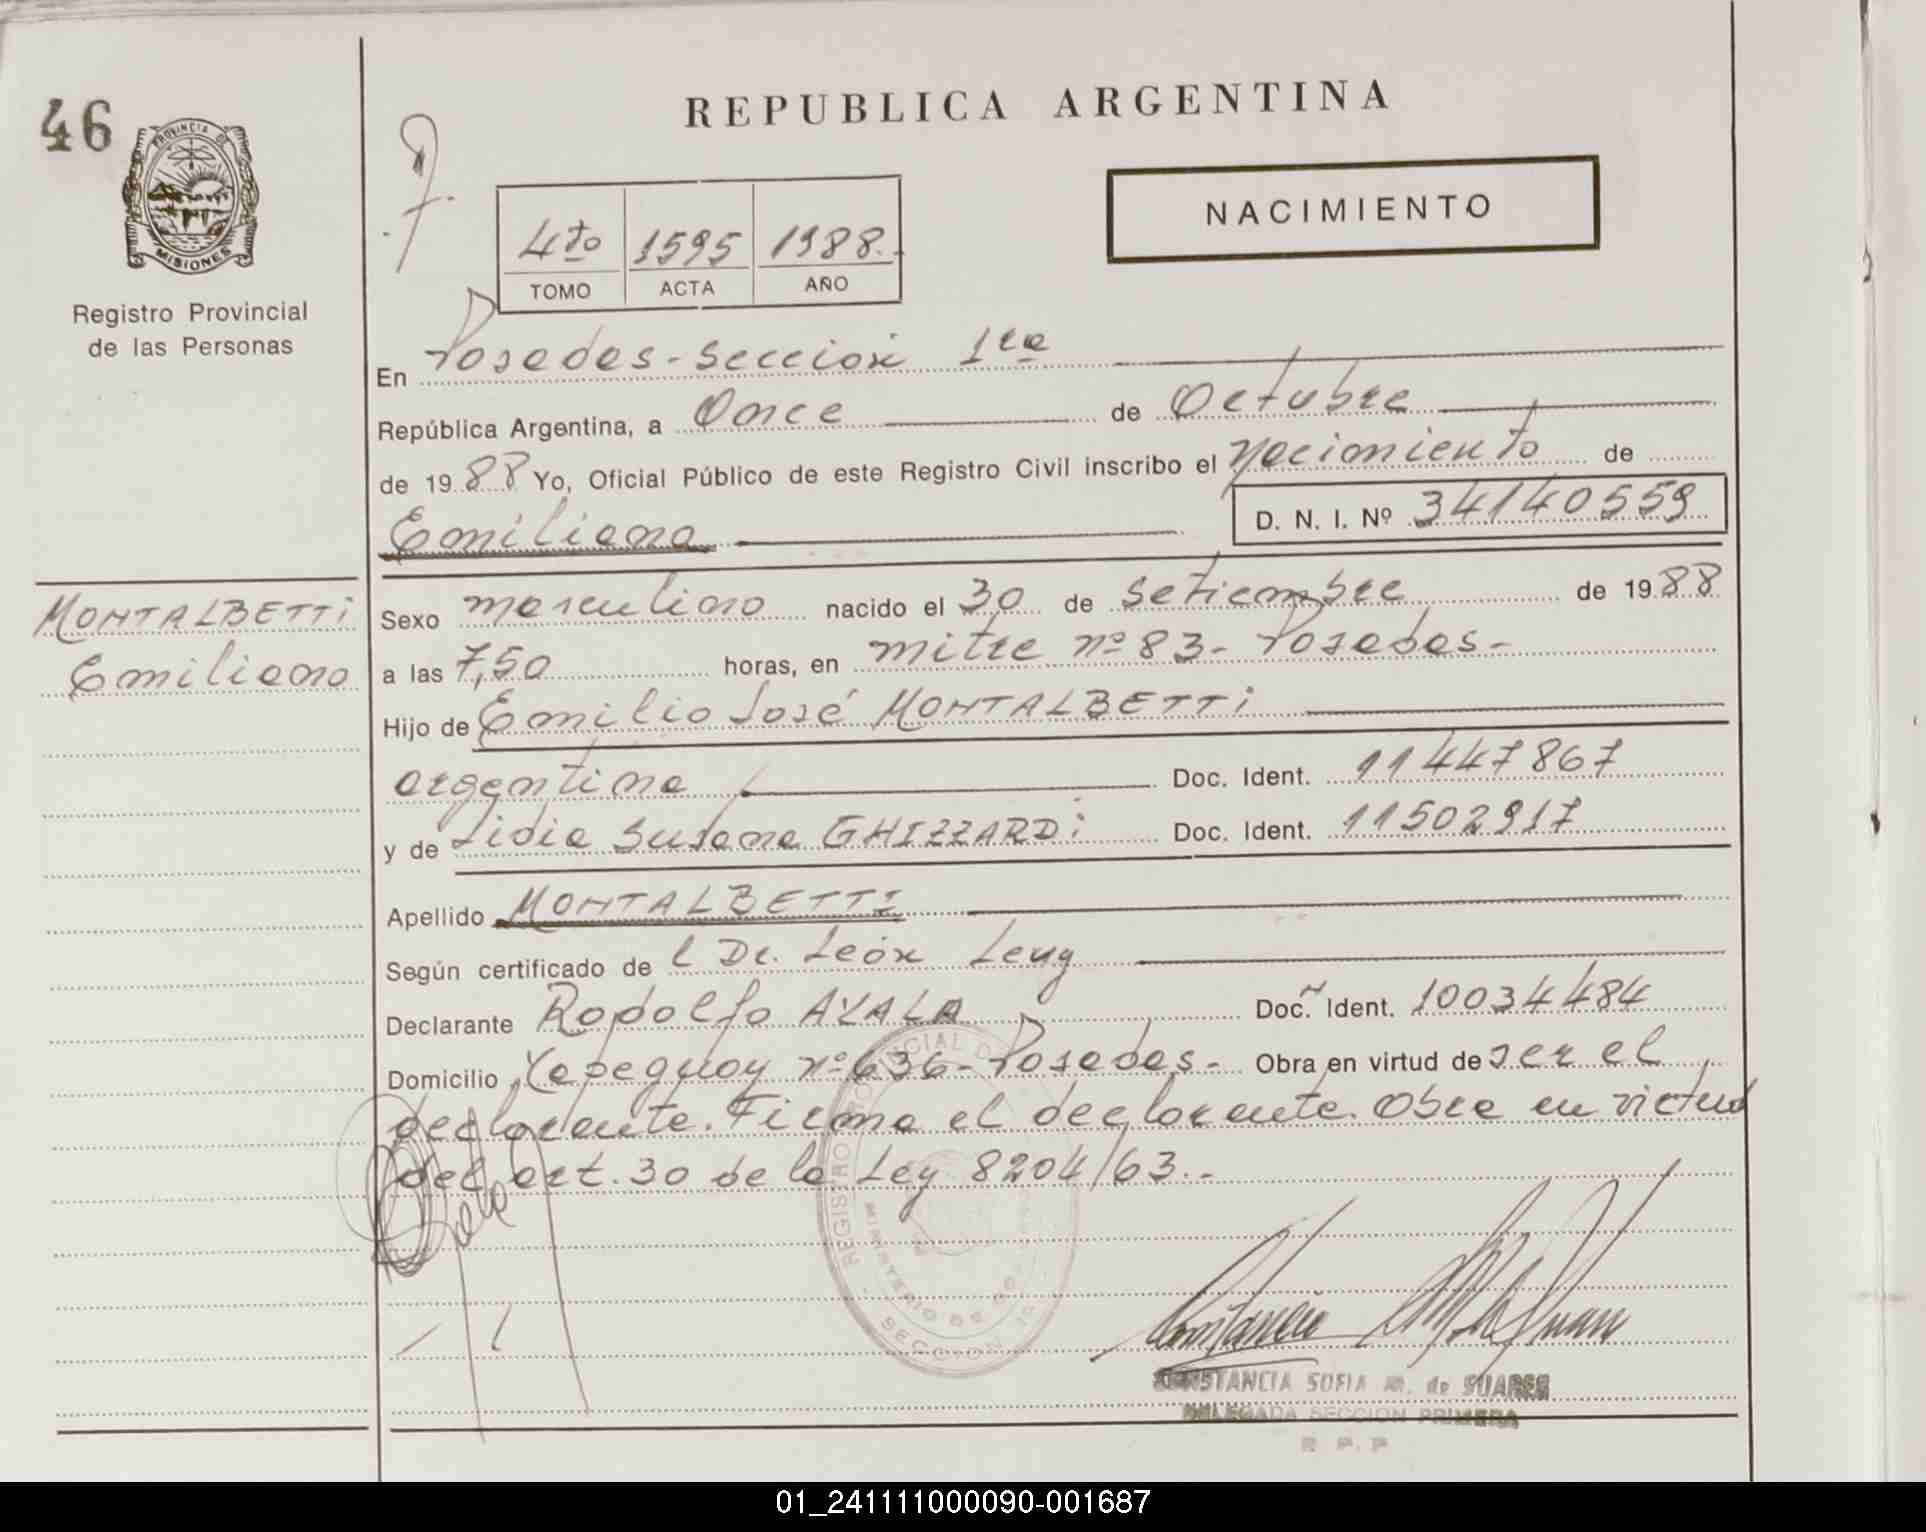 46
REPUBLICA ARGENTINA
NACIMIENTO
PROVINCIA DE
MISIONES
Registro Provincial
de las Personas
4to 1595 1988.
TOMO ACTA AÑO
En Posadas - Sección 1ra
República Argentina, a Once de Octubre
de 1988 Yo, Oficial Público de este Registro Civil inscribo el Nacimiento de
Emiliano D. N. I. Nº 34140559
MONTALBETTi
Emiliano
Sexo masculino nacido el 30 de Setiembre de 1988
a las 7,50 horas, en mitre nº 83 - Posadas -
Hijo de Emilio José MONTALBETTi
argentina Doc. Ident. 11447867
y de Lidia Susana GHIZZARDi Doc. Ident. 11502917
Apellido MONTALBETTI
Según certificado de l Dr. León Leuy
Declarante Rodolfo AYALA Doc. Ident. 10034484
Domicilio Yapeguay nº 636 - Posadas. - Obra en virtud de ser el
declarante. Firma el declarante. Obra en virtud
del art. 30 de la Ley 8204/63. -
REGISTRO PROVINCIAL DE
MINISTERIO DE
SECCION 1a
CONSTANCIA SOFIA M. de SUARES
DELEGADA SECCION PRIMERA
R. P. P
01_241111000090-001687